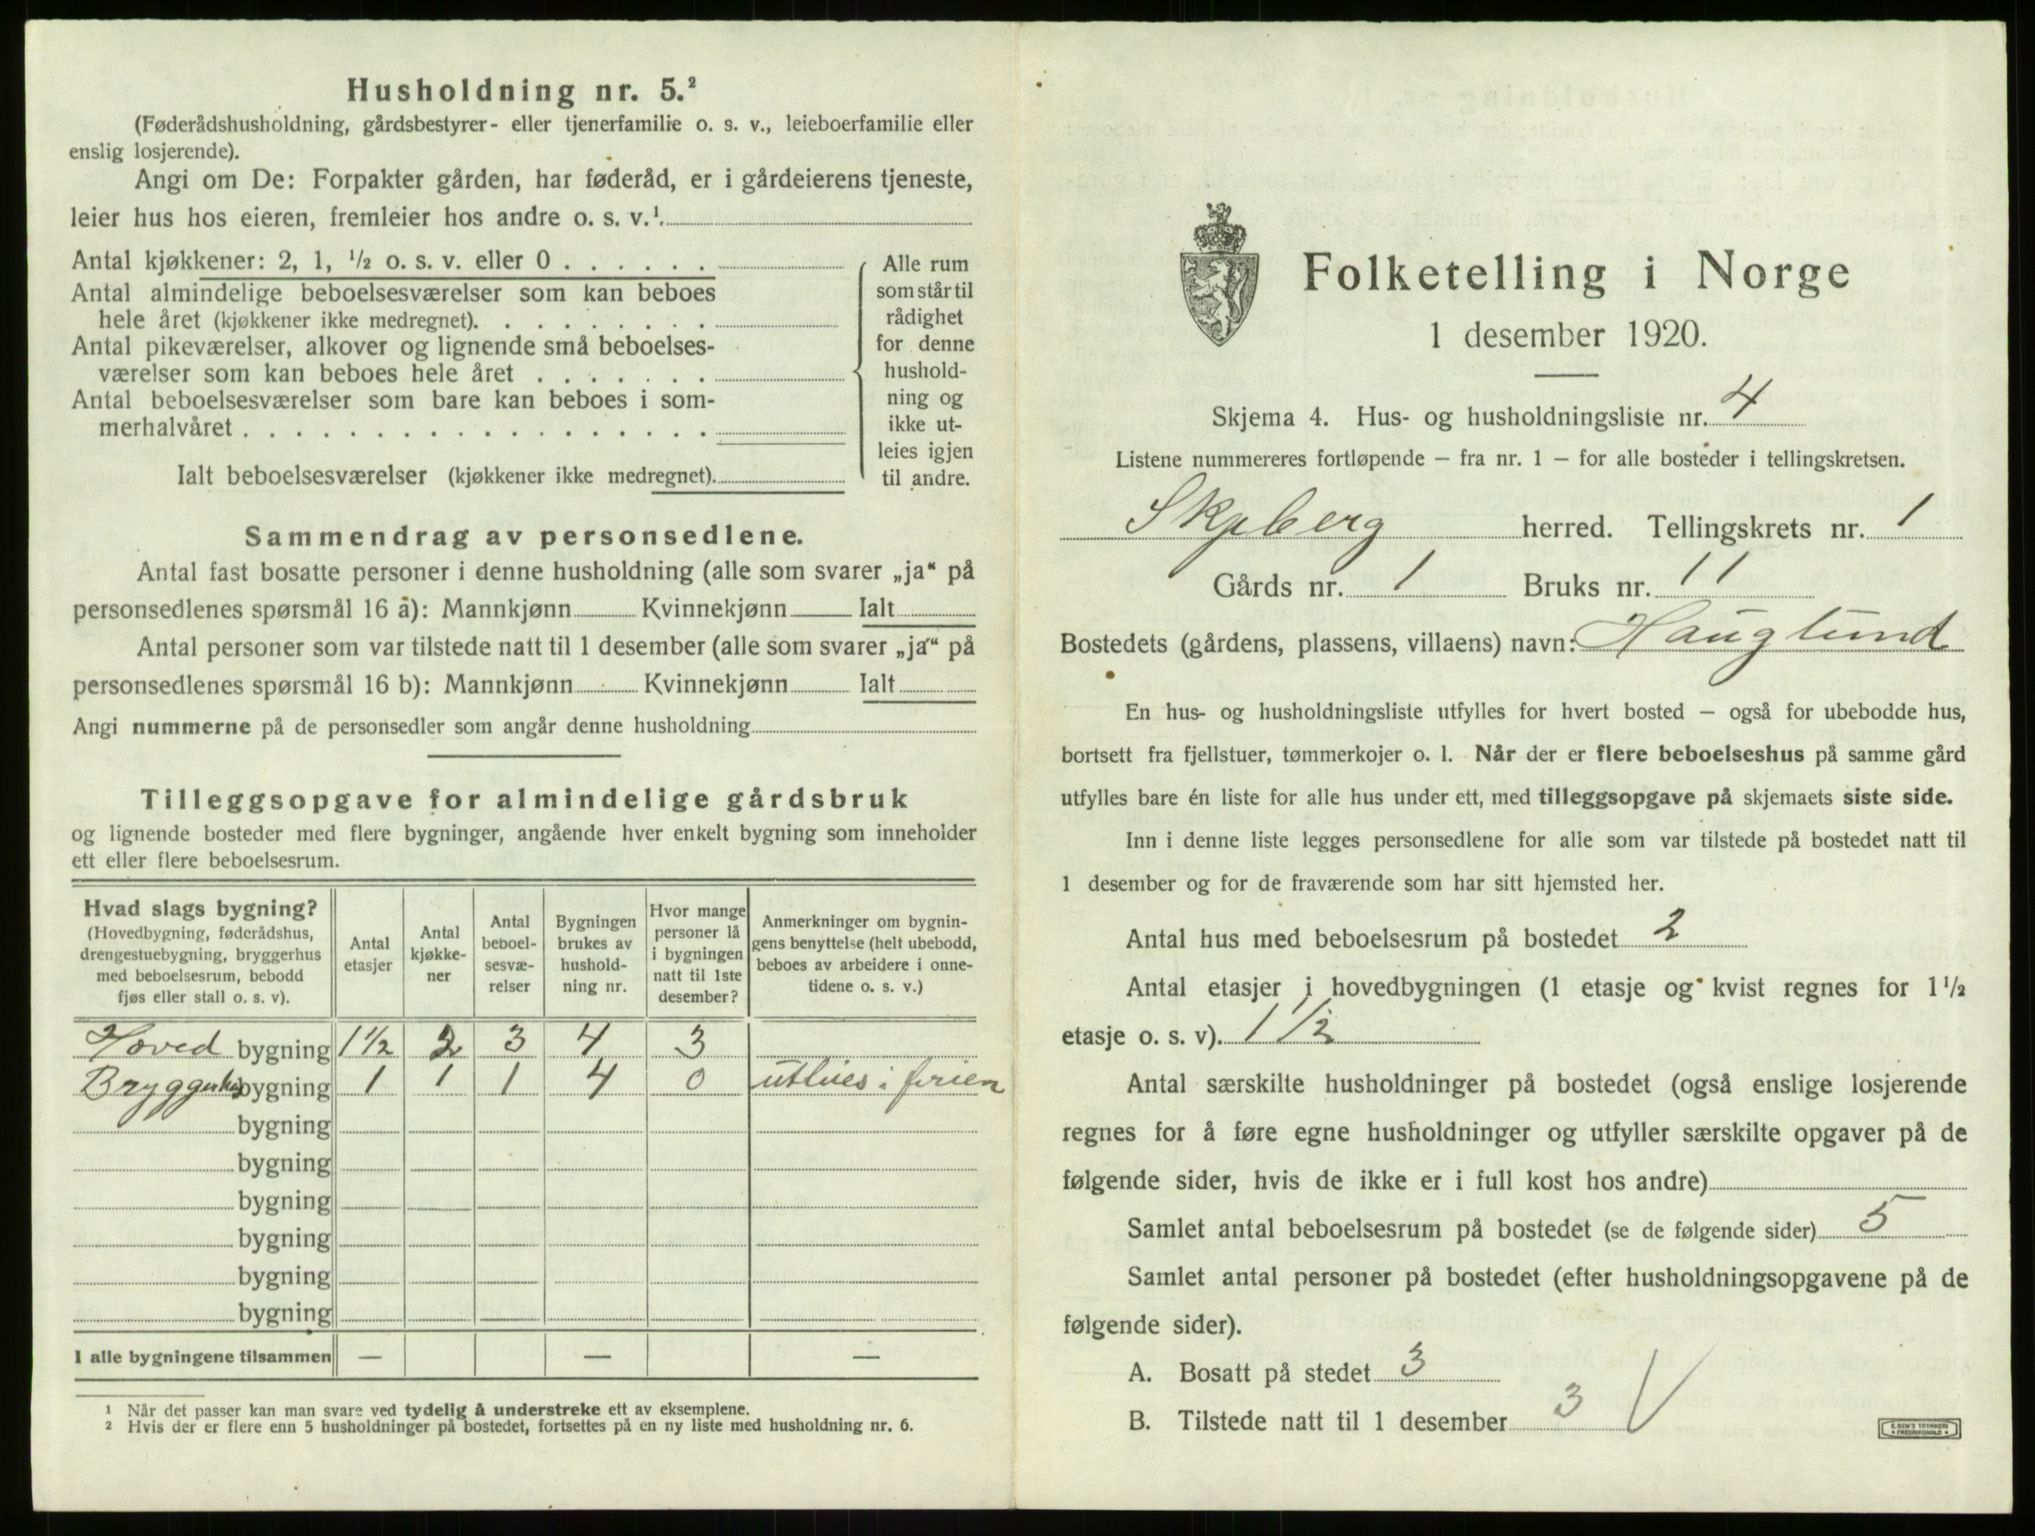 Husholdning nr. 5.²
(Føderådshusholdning, gårdsbestyrer- eller tjenerfamilie o. s. v., leieboerfamilie eller
enslig losjerende).
Angi om De: Forpakter gården, har føderåd, er i gårdeierens tjeneste,
leier hus hos eieren, fremleier hos andre o. s. v.¹.
Antal kjøkkener: 2, 1, ½ o. s. v. eller 0 . . . . . .
Antal almindelige beboelsesværelser som kan beboes
hele året (kjøkkener ikke medregnet). . . . . . . . .
Antal pikeværelser, alkover og lignende små beboelses-
værelser som kan beboes hele året . . . . . . .
Antal beboelsesværelser som bare kan beboes i som-
merhalvåret . . . . . . . . . . . . . . . . . .
Ialt beboelsesværelser (kjøkkener ikke medregnet).
Alle rum
som står til
rådighet
for denne
hushold-
ning og
ikke ut-
leies igjen
til andre.
Sammendrag av personsedlene.
Antal fast bosatte personer i denne husholdning (alle som svarer „ja“ på
personsedlenes spørsmål 16 a): Mannkjønn Kvinnekjønn Ialt
Antal personer som var tilstede natt til 1 desember (alle som svarer „ja“ på
personsedlenes spørsmål 16 b): Mannkjønn Kvinnekjønn Ialt
Angi nummerne på de personsedler som angår denne husholdning
Tilleggsopgave for almindelige gårdsbruk
og lignende bosteder med flere bygninger, angående hver enkelt bygning som inneholder
ett eller flere beboelsesrum.
Hvad slags bygning?
(Hovedbygning, føderådshus,
drengestuebygning, bryggerhus
med beboelsesrum, bebodd
fjøs eller stall o. s. v).
Antal
etasjer
Antal
kjøkke-
ner
Antal
beboel-
sesvæ-
relser
Bygningen
brukes av
hushold-
ning nr.
Hvor mange
personer lå
i bygningen
natt til 1ste
desember?
Anmerkninger om bygnin-
gens benyttelse (helt ubebodd,
beboes av arbeidere i onne-
tidene o. s. v.)
Hoved bygning 1½ 2 3 4 3
Bryggerhus bygning 1 1 1 4 0 utleies i ferien
bygning
bygning
bygning
bygning
bygning
bygning
I alle bygningene tilsammen — — —
¹ Når det passer kan man svare ved tydelig å understreke ett av eksemplene.
² Hvis der er flere enn 5 husholdninger på bostedet, fortsettes på en ny liste med husholdning nr. 6.
Folketelling i Norge
1 desember 1920.
Skjema 4. Hus- og husholdningsliste nr. 4
Listene nummereres fortløpende – fra nr. 1 – for alle bosteder i tellingskretsen.
Skjeberg herred. Tellingskrets nr. 1
Gårds nr. 1 Bruks nr. 11
Bostedets (gårdens, plassens, villaens) navn: Hauglund
En hus- og husholdningsliste utfylles for hvert bosted – også for ubebodde hus,
bortsett fra fjellstuer, tømmerkojer o. l. Når der er flere beboelseshus på samme gård
utfylles bare én liste for alle hus under ett, med tilleggsopgave på skjemaets siste side.
Inn i denne liste legges personsedlene for alle som var tilstede på bostedet natt til
1 desember og for de fraværende som har sitt hjemsted her.
Antal hus med beboelsesrum på bostedet 2
Antal etasjer i hovedbygningen (1 etasje og kvist regnes for 1½
etasje o. s. v). 1½
Antal særskilte husholdninger på bostedet (også enslige losjerende
regnes for å føre egne husholdninger og utfyller særskilte opgaver på de
følgende sider, hvis de ikke er i full kost hos andre)
Samlet antal beboelsesrum på bostedet (se de følgende sider) 5
Samlet antal personer på bostedet (efter husholdningsopgavene på de
følgende sider).
A. Bosatt på stedet 3
B. Tilstede natt til 1 desember 3
E. SEM'S TRYKKERI
FREDRIKSHALD